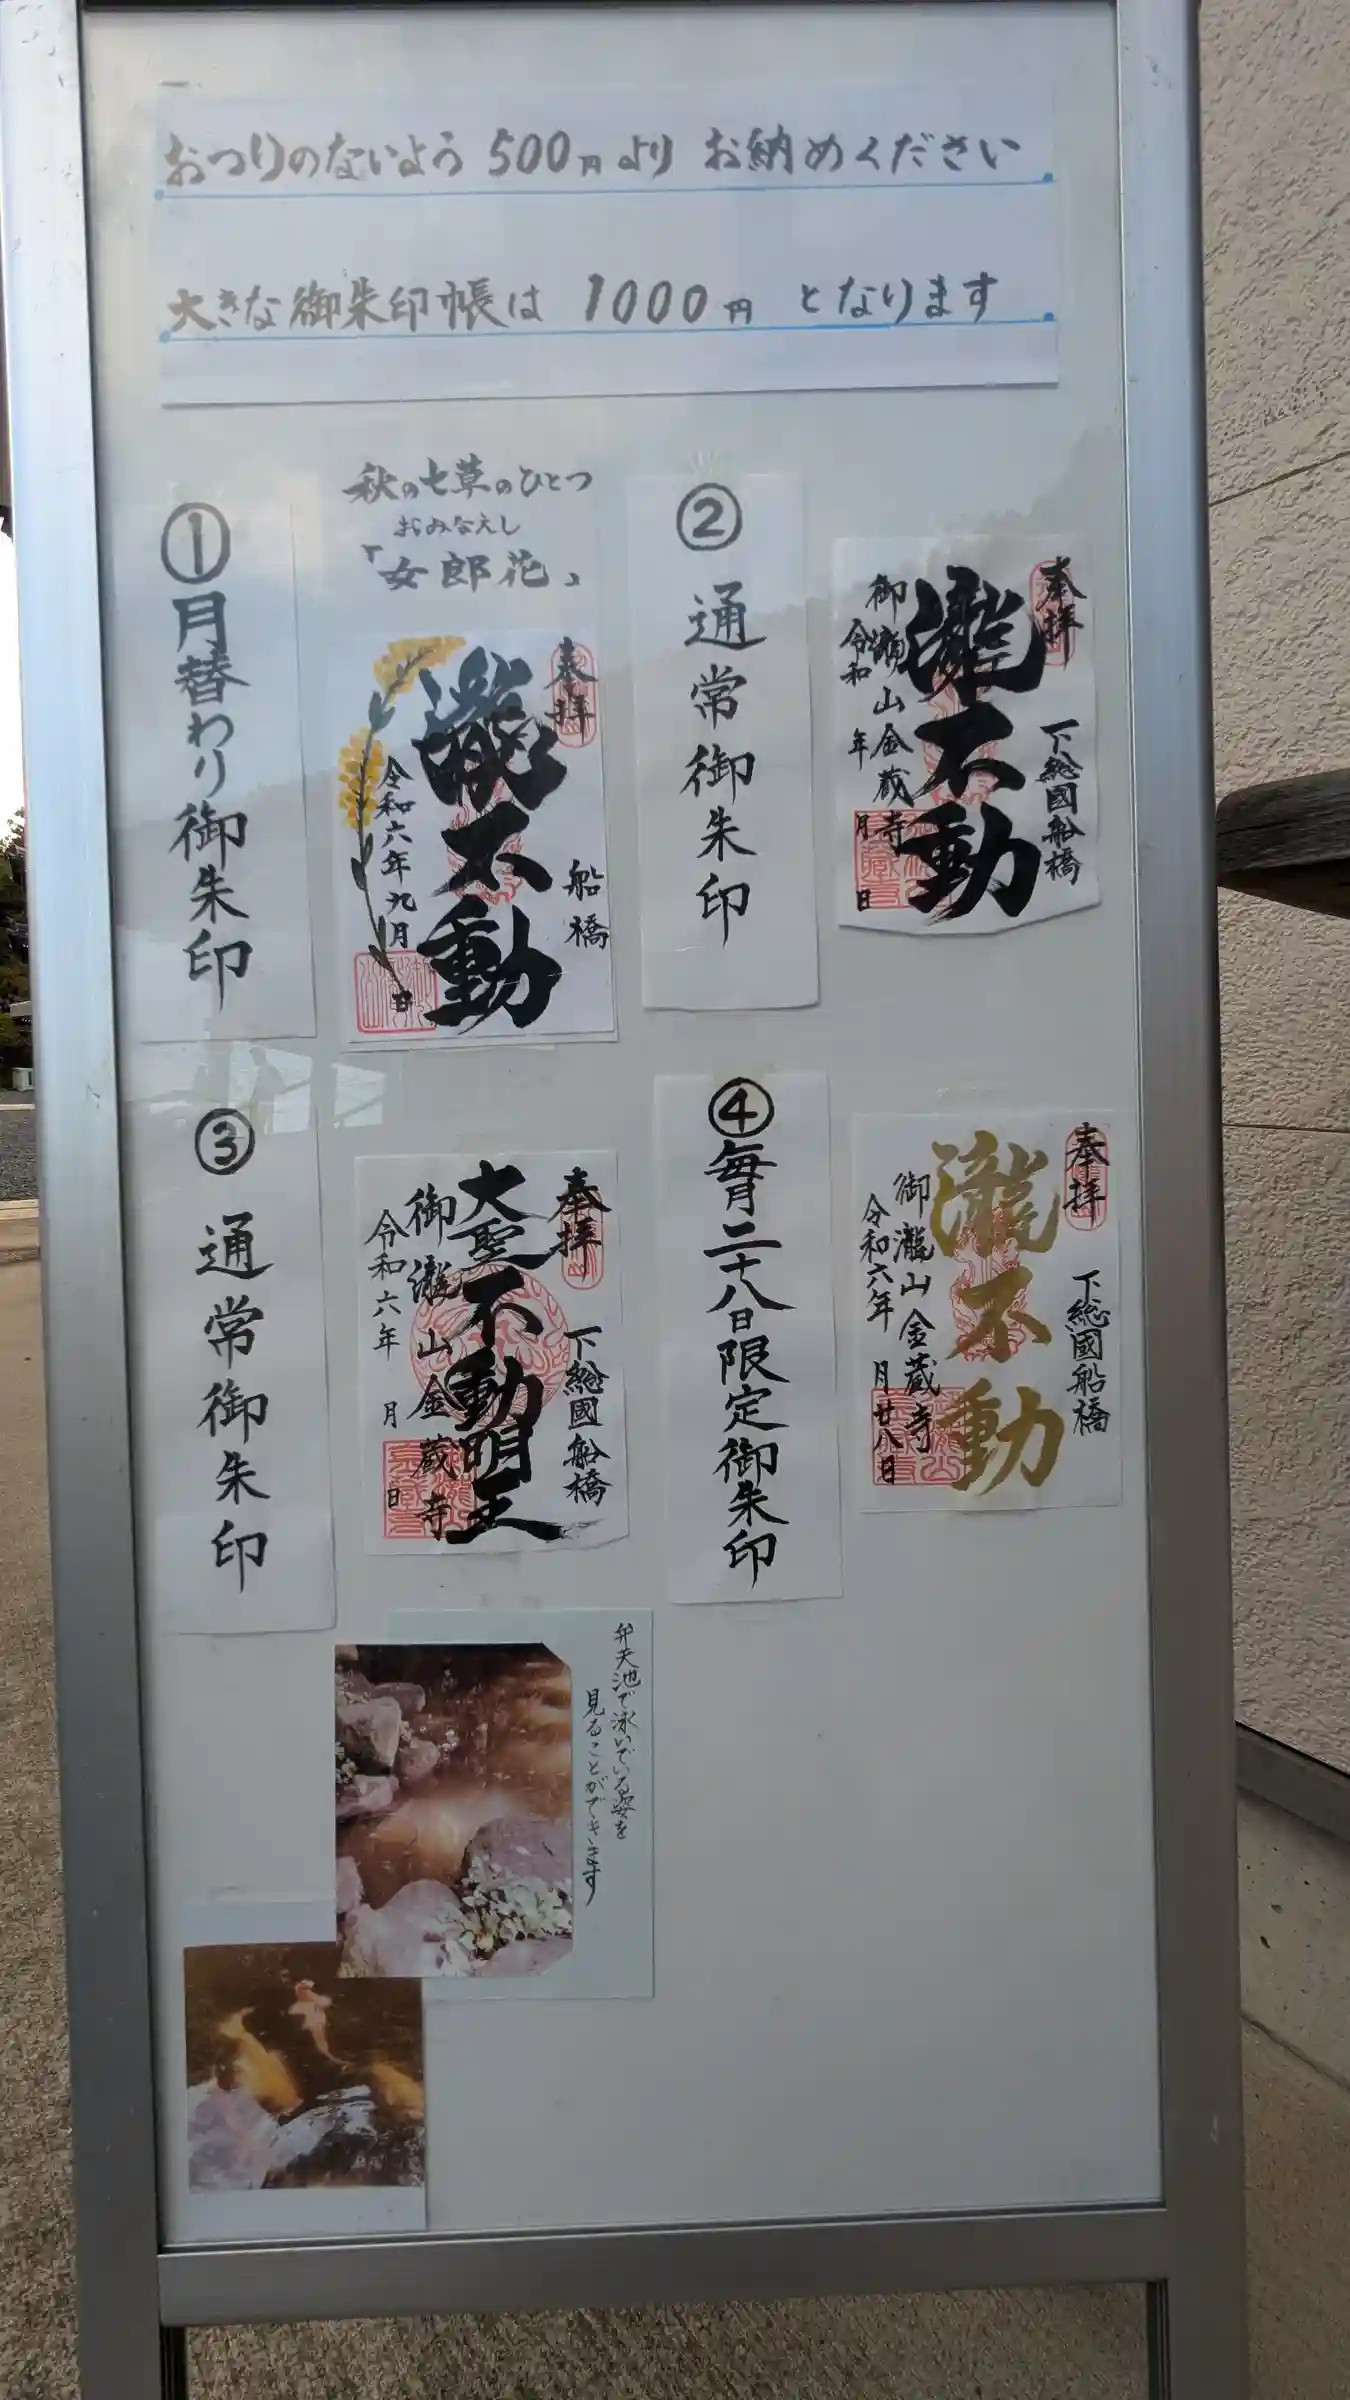 おつりのないよう 500円より お納めください
大きな御朱印帳は 1000円 となります
①月替わり御朱印
秋の七草のひとつ
おみなえし
「女郎花」
奉拝
船橋
瀧不動
令和六年九月 日
②通常御朱印
奉拝
下総國船橋
瀧不動
御瀧山金蔵寺
令和 年 月 日
③通常御朱印
奉拝
下総國船橋
大聖不動明王
御瀧山金蔵寺
令和六年 月 日
④毎月二十八日限定御朱印
奉拝
下総國船橋
瀧不動
御瀧山金蔵寺
令和六年 月廿八日
弁天池で泳いでいる姿を
見ることができます